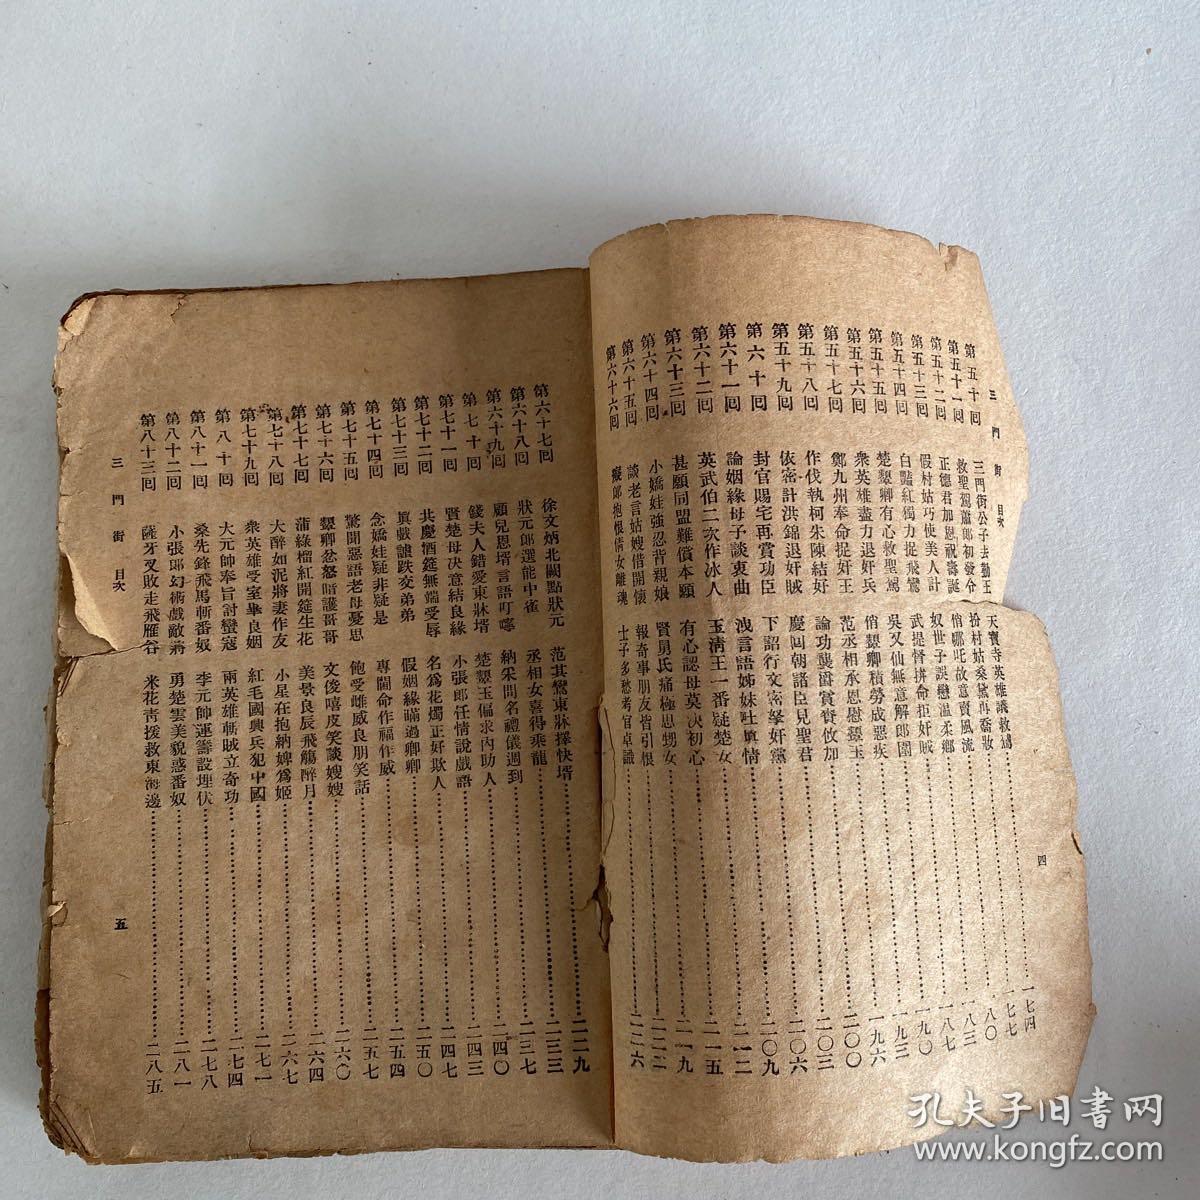 三門街 目次 四
第五十回 三門街公子去勤王 天寶寺英雄議救駕 一七四
第五十一回 救聖駕蕭郎初發令 扮村姑桑黛再喬妝 一七七
第五十二回 正德君加恩祝壽誕 俏哪吒故意賣風流 一八〇
第五十三回 假村姑巧使美人計 奴世子誤戀溫柔鄉 一八三
第五十四回 白豔紅獨力捉飛鸞 武提督拼命拒奸賊 一八七
第五十五回 楚顰卿有心救聖駕 吳又仙無意解郎圍 一九〇
第五十六回 衆英雄盡力退奸兵 俏顰卿積勞成惡疾 一九三
第五十七回 鄭九州奉命捉奸王 范丞相承恩慰顰玉 一九六
第五十八回 作伐執柯朱陳結好 論功襲爵賞賚攸加 二〇〇
第五十九回 依密計洪錦退奸賊 慶回朝諸臣見聖君 二〇三
第六十回 封官賜宅再賞功臣 下詔行文密拏奸黨 二〇六
第六十一回 論姻緣母子談衷曲 洩言語姊妹吐真情 二〇九
第六十二回 英武伯二次作冰人 玉清王一番疑楚女 二一二
第六十三回 甚願同盟難償本願 有心認母莫決初心 二一五
第六十四回 小嬌娃強忍背親娘 賢舅氏痛極思甥女 二一九
第六十五回 談老言姑嫂借開懷 報奇事朋友皆引恨 二二二
第六十六回 癡郎抱恨倩女離魂 士子多愁考官卓識 二二六
第六十七回 徐文炳北闕點狀元 范其鸞東牀擇快壻 二二九
第六十八回 狀元郎選能中雀 丞相女喜得乘龍 二三三
第六十九回 顧兒恩壻言語叮嚀 納采問名禮儀週到 二三七
第七十回 錢夫人錯愛東牀壻 楚顰玉偏求內助人 二四〇
第七十一回 賢楚母決意結良緣 小張郎任情說戲語 二四三
第七十二回 共慶酒筵無端受辱 名爲花燭正好欺人 二四七
第七十三回 眞戲謔跌交弟弟 假姻緣瞞過卿卿 二五〇
第七十四回 念嬌娃疑非疑是 專闖命作福作威 二五四
第七十五回 驚聞惡語老母憂思 飽受雌威良朋笑話 二五七
第七十六回 顰卿忿怒暗護哥哥 文俊嘻皮笑談嫂嫂 二六〇
第七十七回 蒲綠榴紅開筵生花 美景良辰飛觴醉月 二六四
第七十八回 大醉如泥將妻作友 小星在抱納婢爲姬 二六七
第七十九回 衆英雄受室畢良姻 紅毛國興兵犯中國 二七一
第八十回 大元帥奉旨討蠻寇 兩英雄斬賊立奇功 二七四
第八十一回 桑先鋒飛馬斬番奴 李元帥運籌設埋伏 二七八
第八十二回 小張郎幻術戲敵將 勇楚雲美貌惑番奴 二八一
第八十三回 薩牙叉敗走飛雁谷 米花青援救東海邊 二八五
三門街 目次 五
孔夫子旧書网
www.kongfz.com